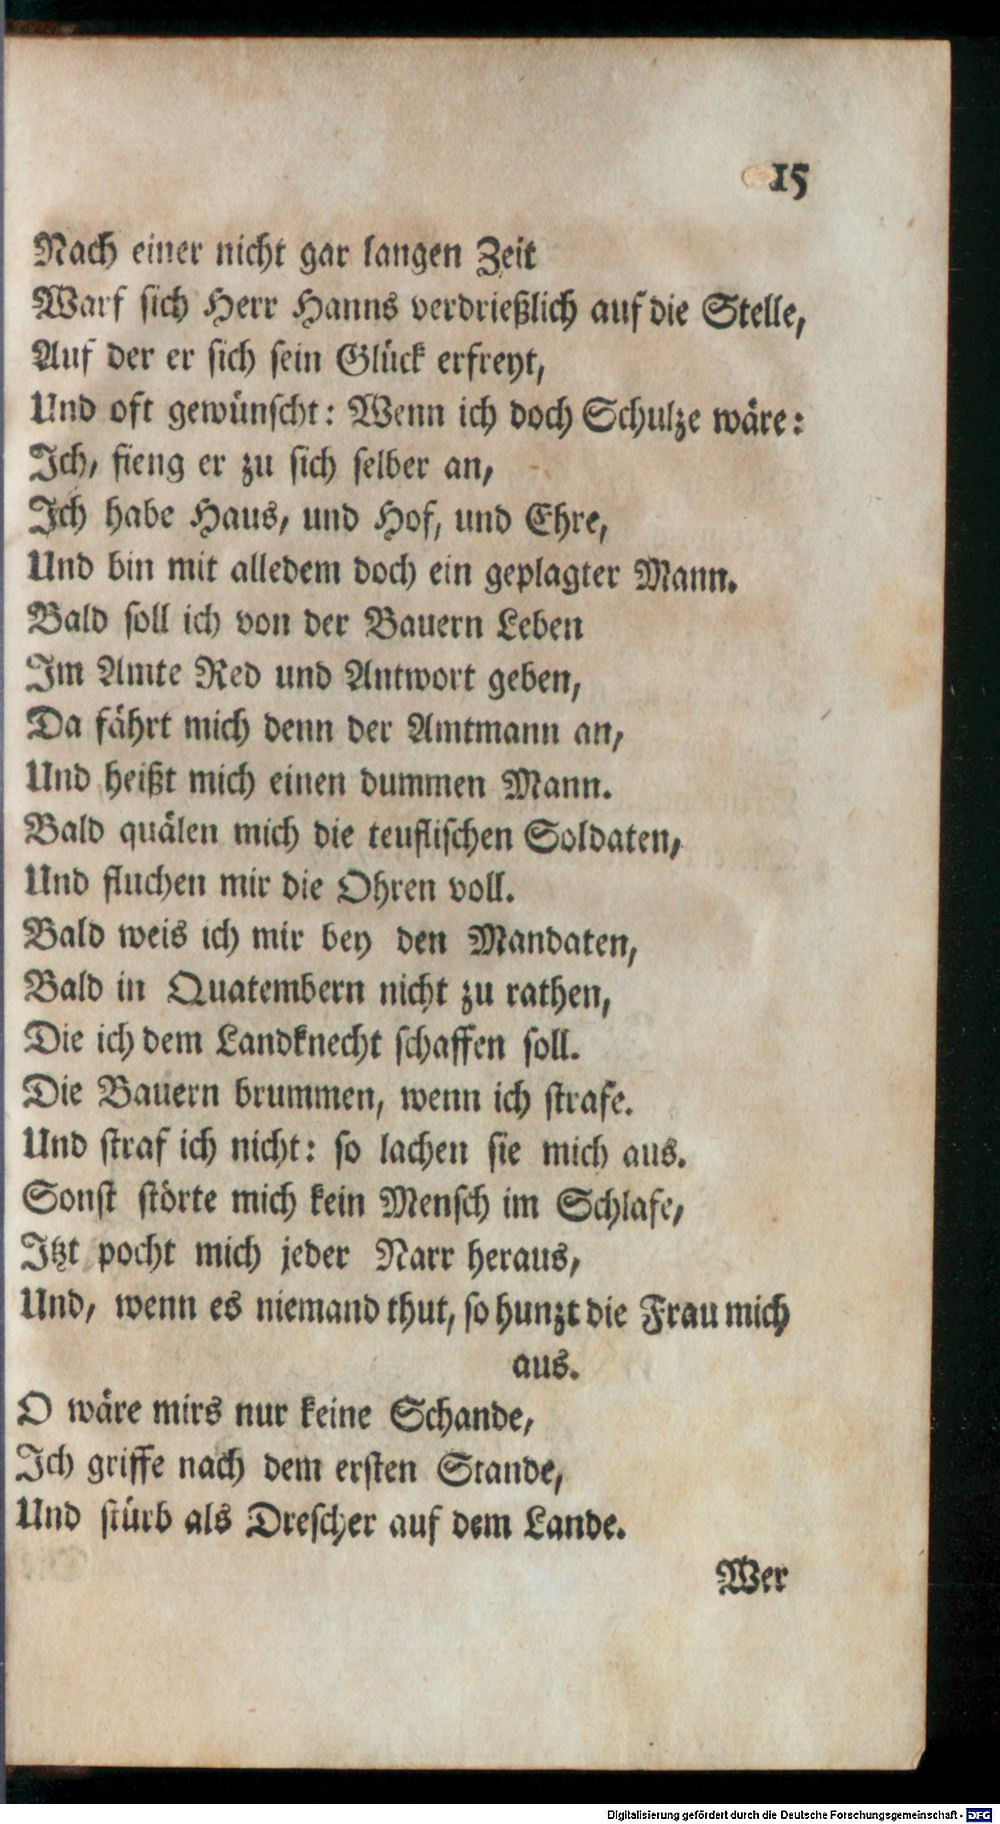 15
Nach einer nicht gar langen Zeit
Warf sich Herr Hanns verdrießlich auf die Stelle,
Auf der er sich sein Glück erfreyt,
Und oft gewünscht: Wenn ich doch Schulze wäre:
Ich, fieng er zu sich selber an,
Ich habe Haus, und Hof, und Ehre,
Und bin mit alledem doch ein geplagter Mann.
Bald soll ich von der Bauern Leben
Im Amte Red und Antwort geben,
Da fährt mich denn der Amtmann an,
Und heißt mich einen dummen Mann.
Bald quälen mich die teuflischen Soldaten,
Und fluchen mir die Ohren voll.
Bald weis ich mir bey den Mandaten,
Bald in Quatembern nicht zu rathen,
Die ich dem Landknecht schaffen soll.
Die Bauern brummen, wenn ich strafe.
Und straf ich nicht: so lachen sie mich aus.
Sonst störte mich kein Mensch im Schlafe,
Itzt pocht mich jeder Narr heraus,
Und, wenn es niemand thut, so hunzt die Frau mich
aus.
O wäre mirs nur keine Schande,
Ich griffe nach dem ersten Stande,
Und stürb als Drescher auf dem Lande.
Wer
Digitalisierung gefördert durch die Deutsche Forschungsgemeinschaft - DFG